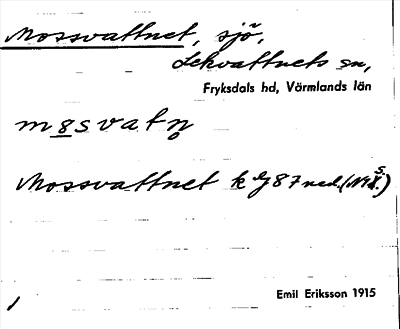 Mossvattnet, sjö,
Lekvattnets sn,
Fryksdals hd, Värmlands län
m8svatn̥
Mossvattnet k
Emil Eriksson 1915